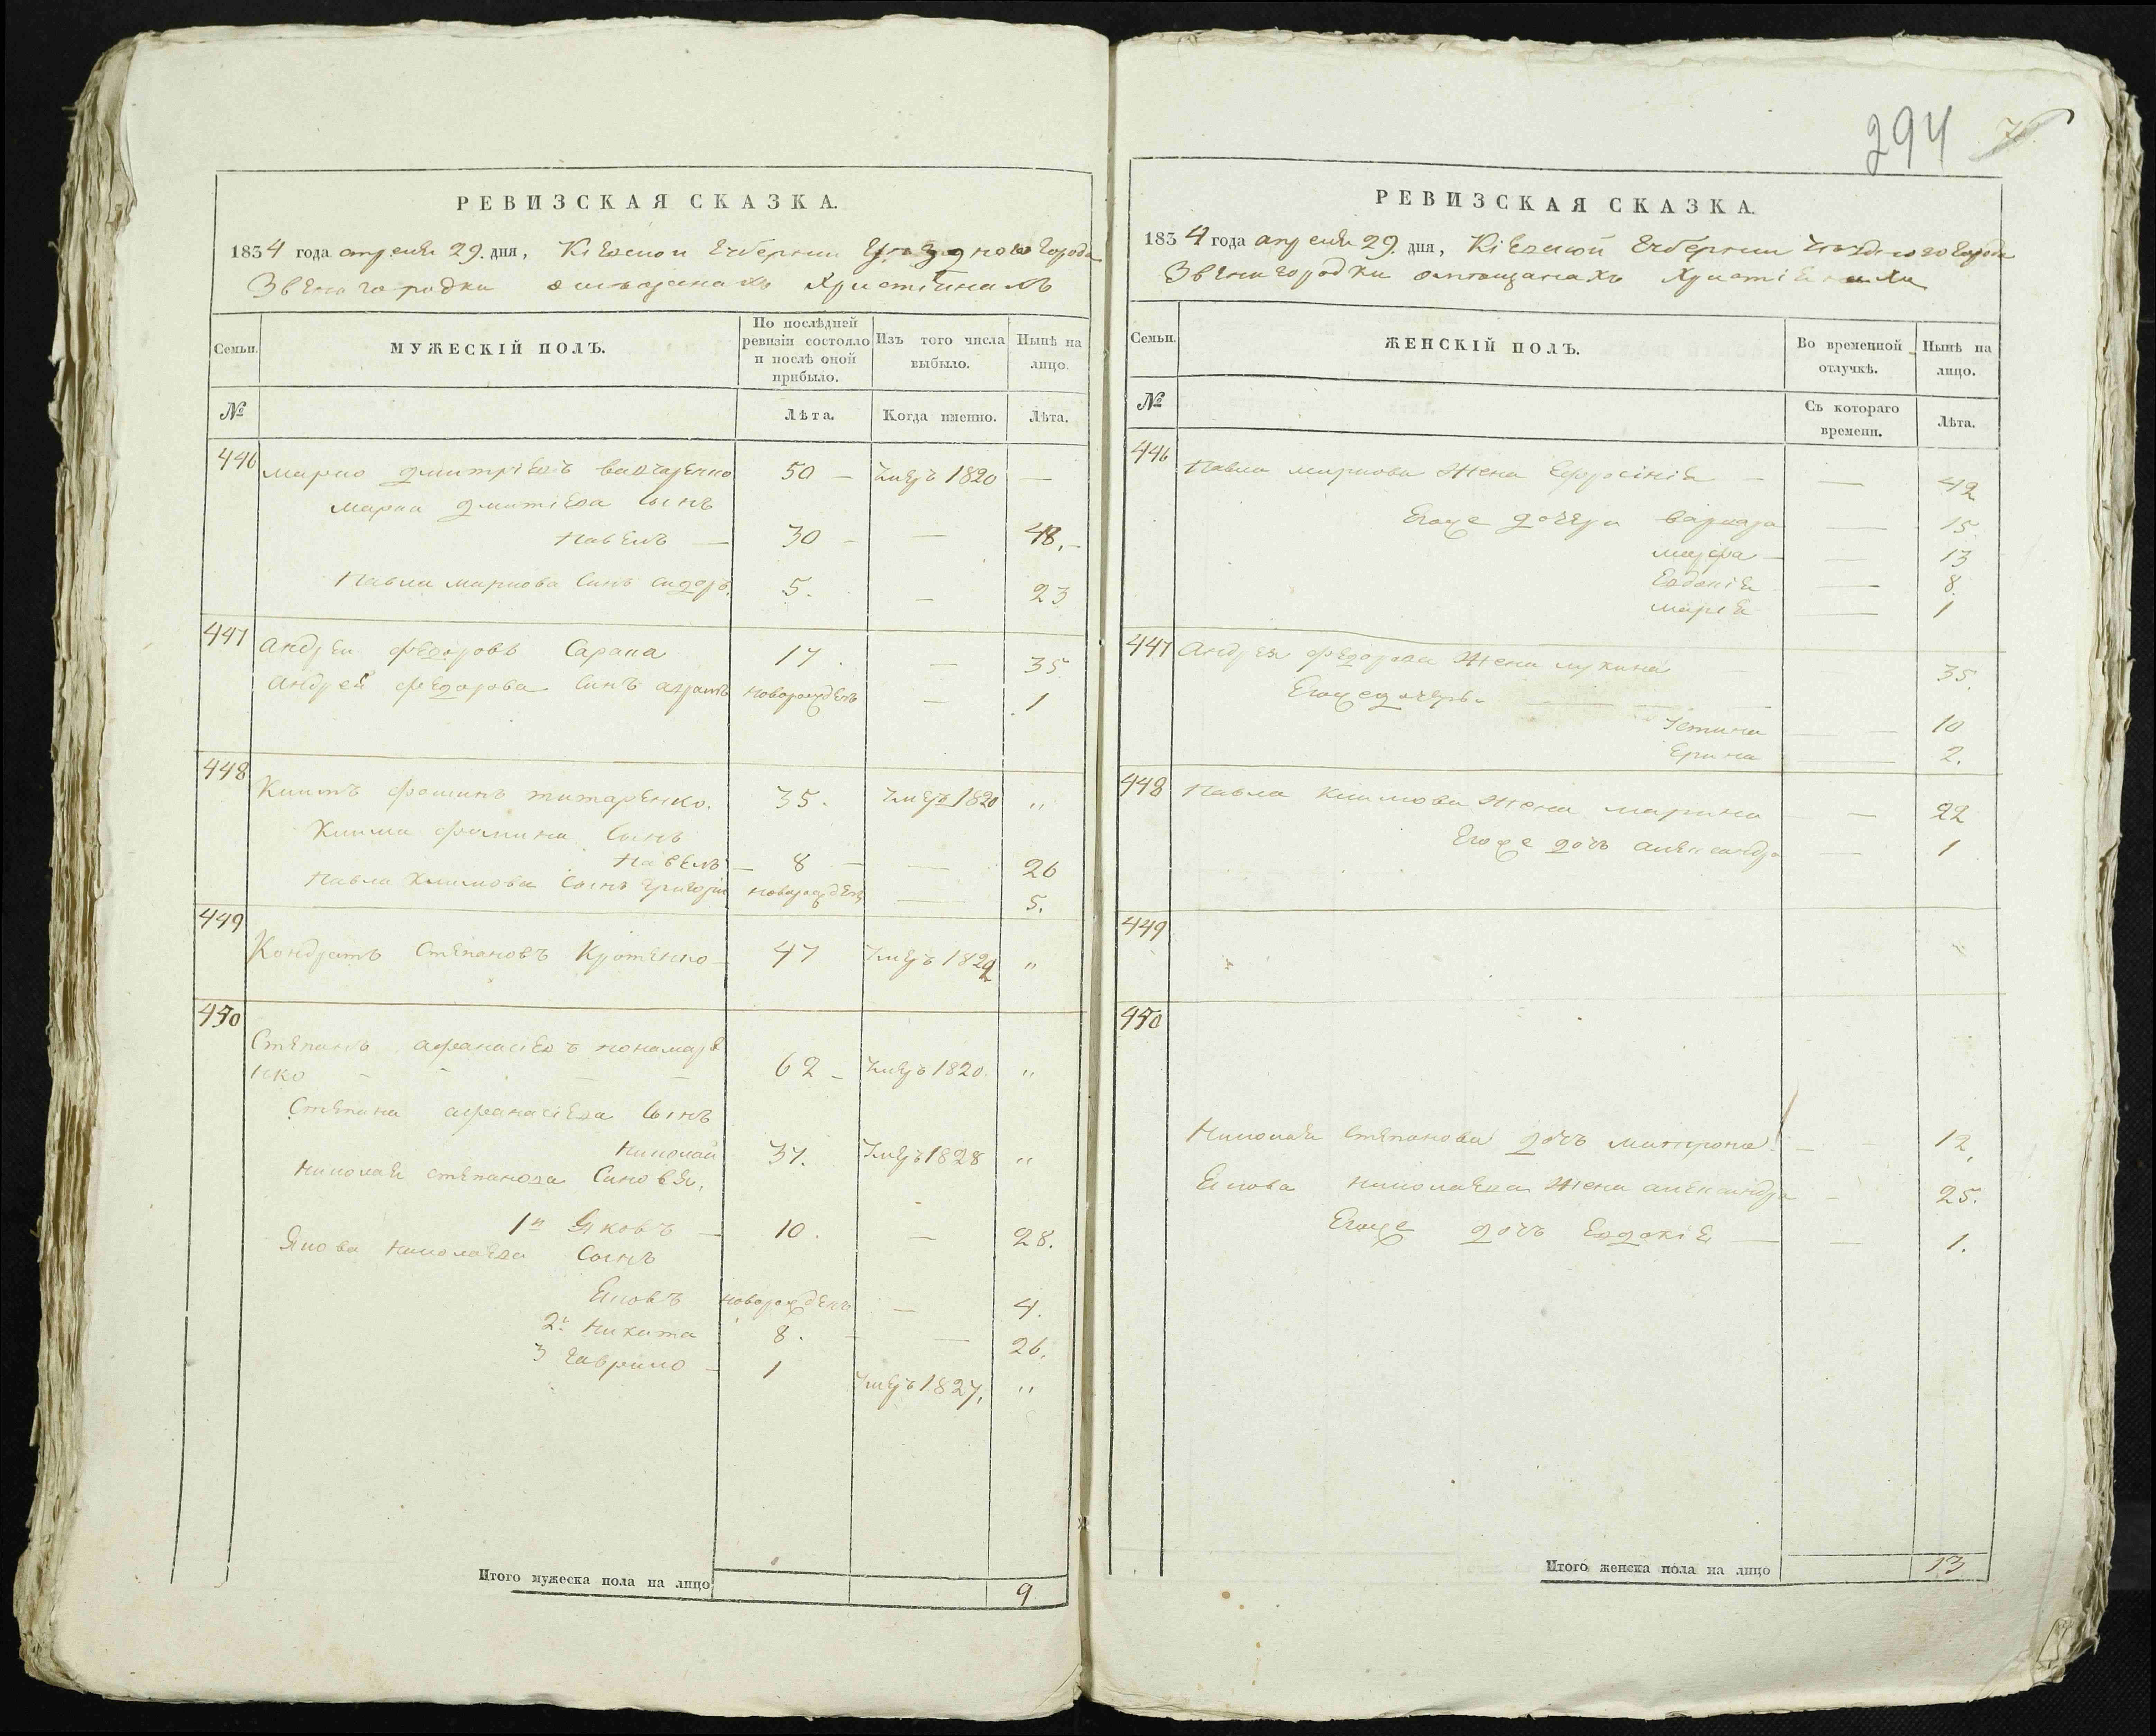 РЕВИЗСКАЯ СКАЗКА.
1834 года апреля 29. дня, Кіевской Губерніи Уезднаго города
Звенигородки омещанахъ Христіянахъ
Семьи.
МУЖЕСКІЙ ПОЛЪ.
По послѣдней ревизіи состояло и послѣ оной прибыло.
Изъ того числа выбыло.
Нынѣ на лицо.
№
Лѣта.
Когда именно.
Лѣта.
446 Марко Дмитріевъ 50 — Умеръ 1820 —
Марка Дмитіева Сынъ
Павелъ — 30 — — 48.
Павла Маркова Синъ Сидоръ. 5. — 23
447 Андрей Федоровъ Сарана 17. — 35.
Андрей Федорова Синъ новорожденъ — 1
448 Климъ Фоминъ Титаренко. 35. Умеръ 1820 "
Клима Фомина Сынъ
Павелъ — 8 — — 26
Павла Климова Сынъ Григорій новорожденъ — 5.
449 Кондратъ Степановъ Кротенко 47 Умеръ 1822 "
450
Степанъ Афанасіевъ Пономаре
нко — — 62 — Умеръ 1820. "
Степана Афанасіева Сынъ
Николай 37. Умеръ 1828 "
Николая Степанова Синовя.
1й Яковъ — 10. — 28.
Якова Николаева Сынъ
Яковъ новорожденъ — 4.
2й Никита 8. — 26.
3 Гаврило — 1 Умеръ 1827. "
Итого мужеска пола на лицо 9
294
РЕВИЗСКАЯ СКАЗКА.
1834 года апреля 29. дня, Кіевской Губерніи Уезднаго города
Звенигородки омещанахъ Христіянахъ
Семьи.
ЖЕНСКІЙ ПОЛЪ.
Во временной отлучкѣ.
Нынѣ на лицо.
№
Съ котораго времени.
Лѣта.
446 Павла Маркова Жена Ефросінія — — 42
Егоже дочери Варвара — 15.
Марфа — — 13
Евдокія — 8.
Марія — 1
447 Андрея Федорова Жена Лукина 35.
Егоже дочеры —
Устина — — 10
Ерина — 2.
448 Павла Климова Жена Марина — 22
Егоже дочъ Александра — 1
449
450
Николая Степанова дочъ Матрона — 12.
Якова Николаева Жена Александра — 25.
Егоже дочъ Евдокія — — 1.
Итого женска пола на лицо 13